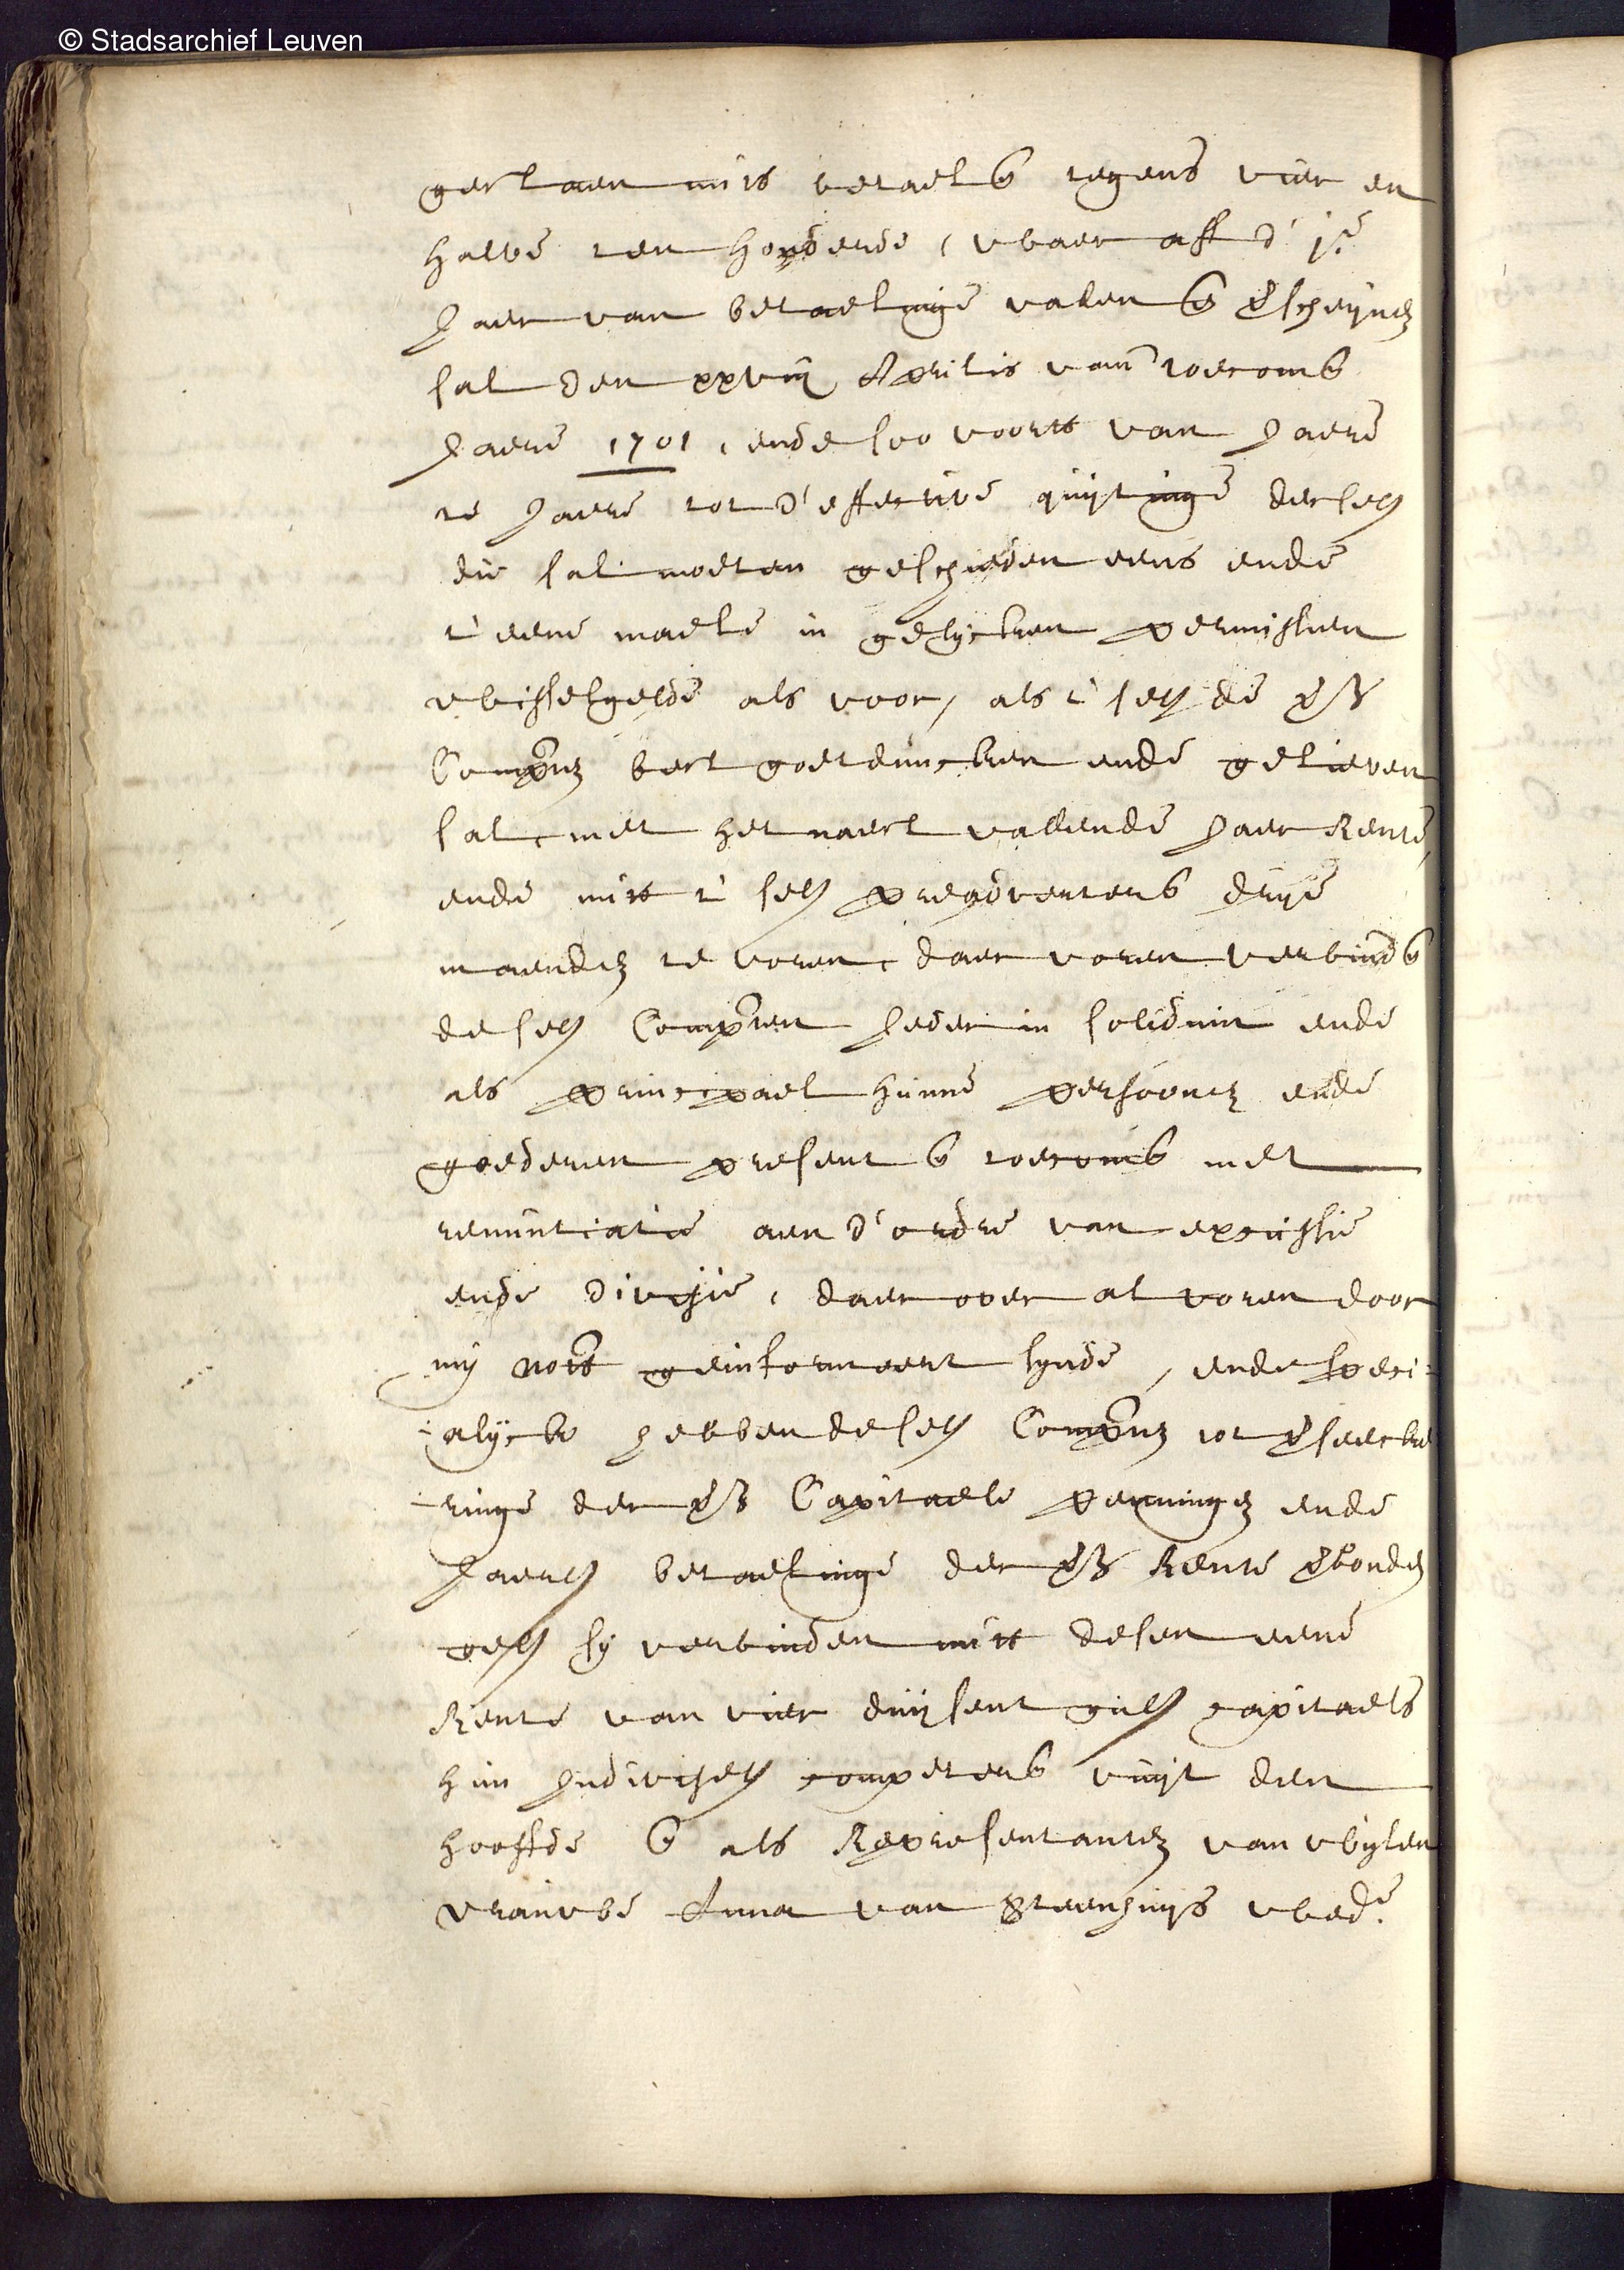 © Stadsarchief Leuven
gestaen mits betael(en) tegens vier en
halve ten hondende, waer aff d' j.e
Jaer van betaelinge vallen en(de) v(er)scheijnen
sal den xxviij Aprilis van toecom(en)
Jaere 1701, ende soo voorts van Jaere
te Jaere tot d'effective quijtinge derselv(er)
die sal moeten geschieden eens ende
t'eene maele in gelijcken permissien
wisselgelde als voor, als t' selv(e) de v(oor)s(chreven)
Comp(ara)nten best goetduncken ende gelieven
sal, met het naest vallende Jaer Rente,
ende mits t' selv(e) preadverteren(de) drije
maenden te voren, daer voren verbinden(de)
deselv(e) Comp(aran)ten Jeder in solidum ende
als principael hunne persoonen ende
goederen present en(de) toecom(ende) met
renuntiatie aen d'ordre van excussie
ende divisie, daer over al voren door
mij not(ari)s geinformeert sijnde, ende speci-
-alijck hebben deselv(e) Comp(ara)nten tot v(er)seecke
-ringe der v(oor)s(chreven) Capitaele penningen ende
Jaerel(ijcksche) betaelinge der v(oor)s(chreven) Rente v(er)bonden
gel(ijck) sij verbinden mits desen eene
Rente van vier duijsent guld(ens) capitaels
hun Indivisel(ijck) competeren(de) uuijt den
hooffde en(de) als Representanten van wijlen
vrouwe Anna van Steenhuijs wed.e